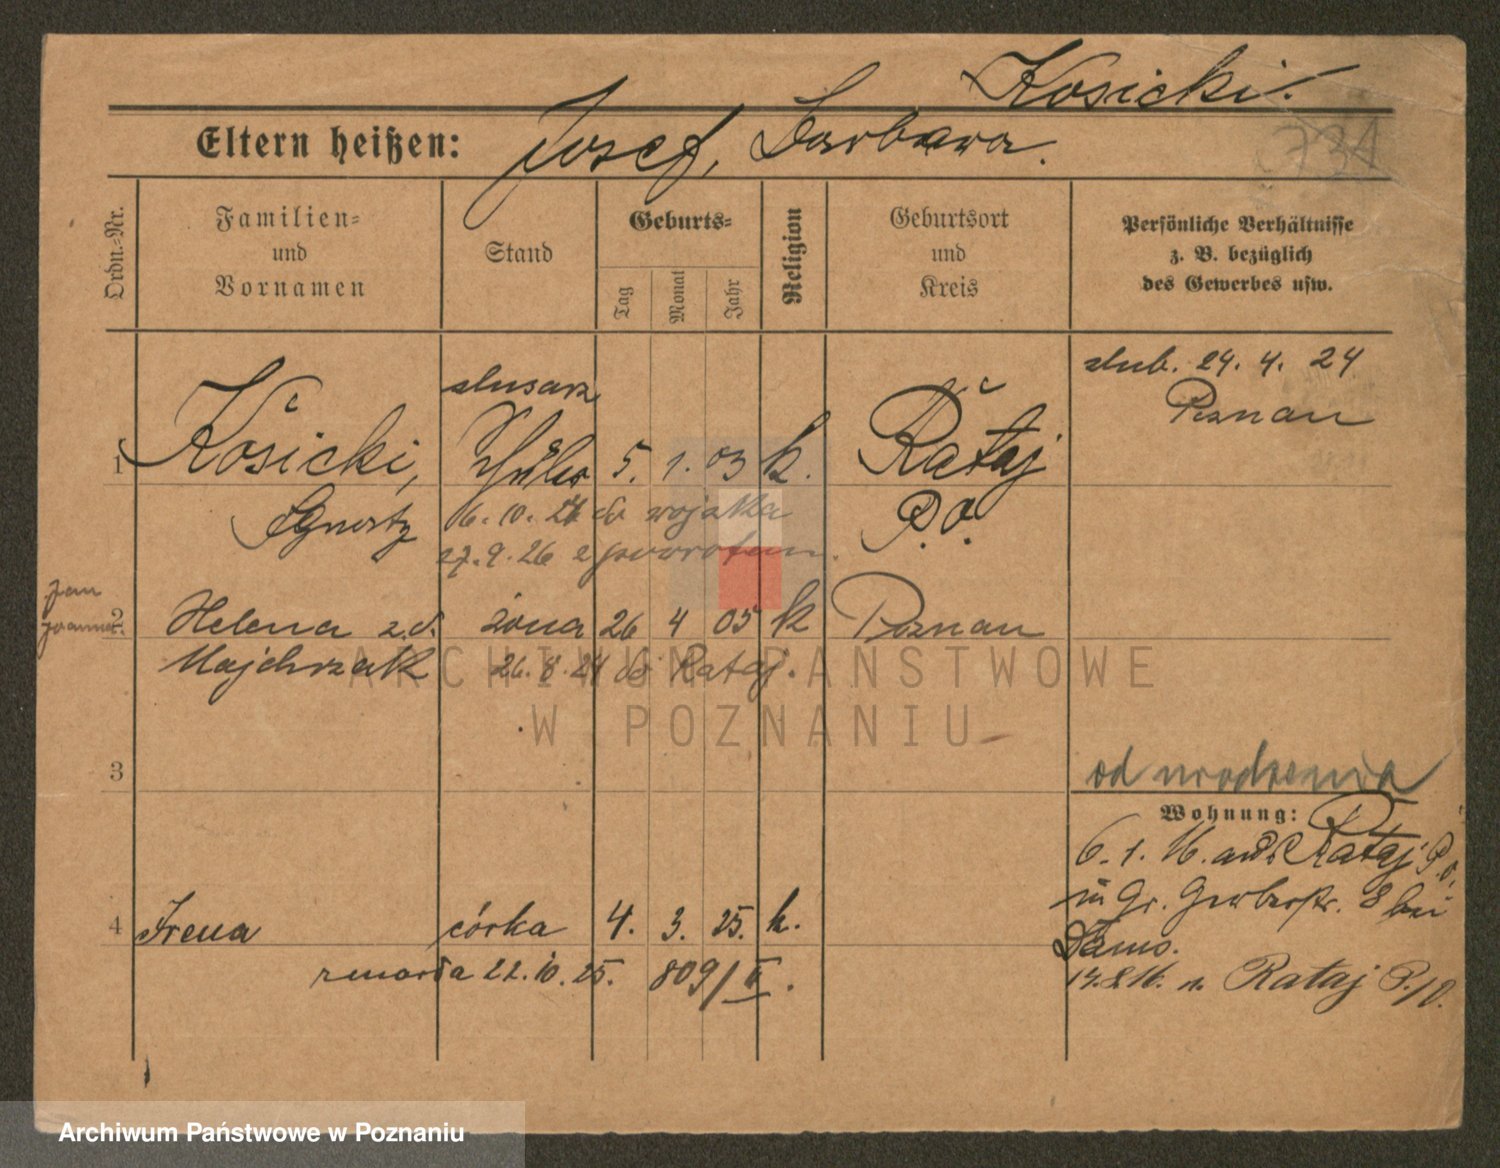 Kosicki.
Eltern heißen: Josef, Barbara.
731
Ordn.-Nr.
Familien-
und
Vornamen
Stand
Geburts-
Tag
Monat
Jahr
Religion
Geburtsort
und
Kreis
Persönliche Verhältnisse
z. B. bezüglich
des Gewerbes usw.
ślub. 24. 4. 24
Poznan
ślusarz
1 Kośicki, Schüler 5. 1. 03 k. Rataj
Ignatz P. O.
6. 10. 24 do wojska
27. 9. 26 z powrotem.
Jan
Joanna.
2 Helena z.d. żona 26 4 05 k Poznan
Majchrzak 26. 8. 24 do Rataj.
3
od urodzenia
Wohnung:
6. 1. 16. aus Rataj P. O.
in Gr. Gerberstr. 8 bei
14. 8. 16. n. Rataj P./O.
4 Irena córka 4. 3. 25. k.
zmarła 22. 10. 25. 809/II.
ARCHIWUM PAŃSTWOWE
W POZNANIU
Archiwum Państwowe w Poznaniu